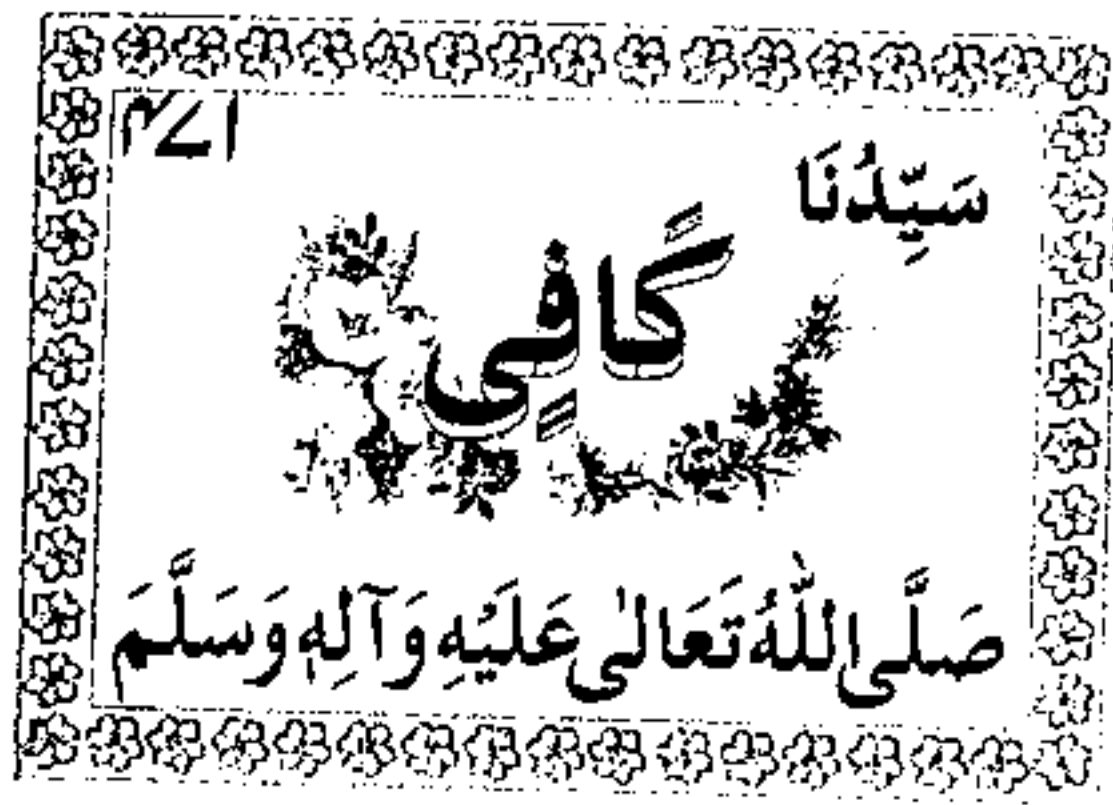 سَيِّدُنَا
كَافِى
صَلَّى اللّٰهُ تَعَالٰى عَلَيْهِ وَآلِهٖ وَسَلَّمَ